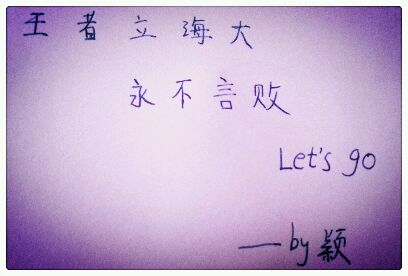 王者立海大
永不言败
Let's go
——by颖